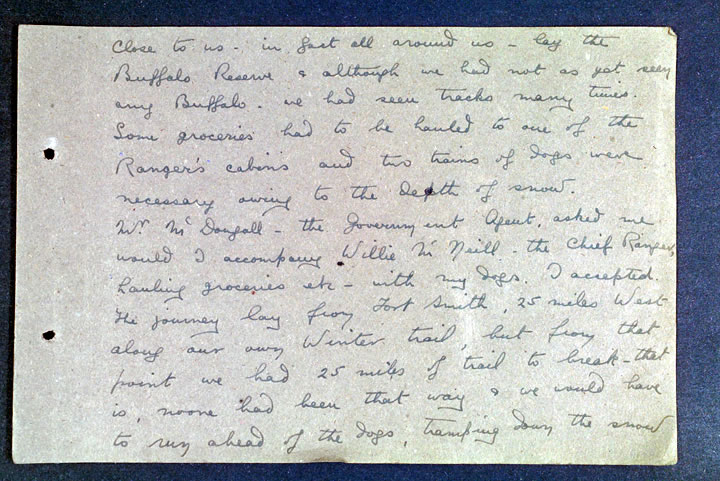 close to us - in fact all around us - lay the
Buffalo Reserve & although we had not as yet seen
any Buffalo - we had seen tracks many times.
Some groceries had to be hauled to one of the
Ranger's cabins and two trains of dogs were
necessary owing to the depth of snow.
Mr. McDougall - the Government Agent, asked me
would I accompany Willie McNeill - the Chief Ranger,
hauling groceries etc - with my dogs. I accepted.
The journey lay from Fort Smith, 25 miles West
along our own Winter trail, but from that
point we had 25 miles of trail to break - that
is, noone had been that way & we would have
to run ahead of the dogs, tramping down the snow